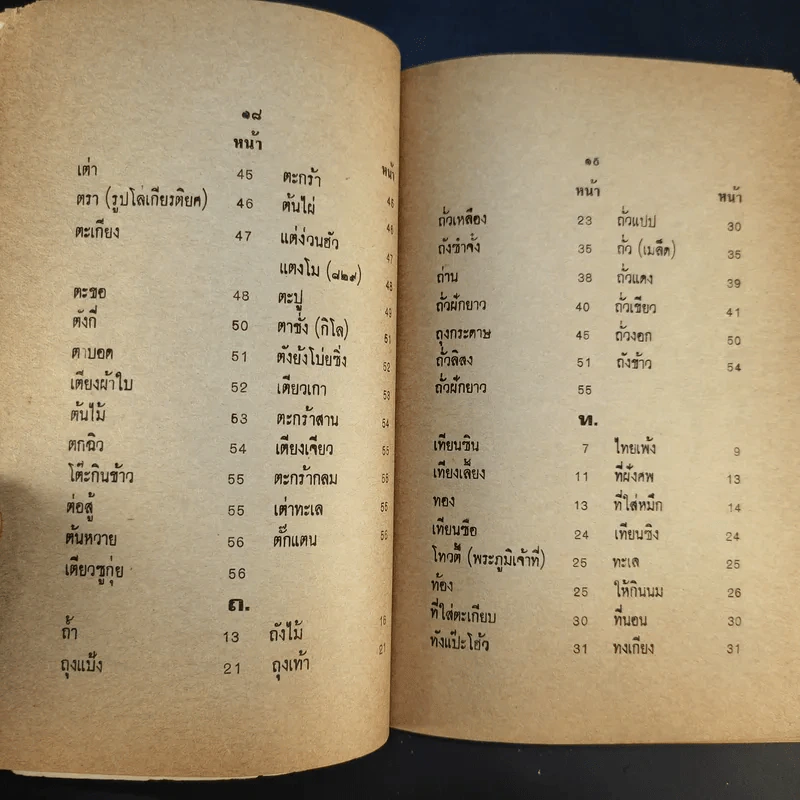 ๑๘
หน้า หน้า
เต่า 45 ตะกร้า 46
ตรา (รูปโล่เกียรติยศ) 46 ต้นไผ่ 46
ตะเกียง 47 แต่ง่วนฮัว 47
แตงโม (๘๒๙) 48
ตะขอ 48 ตะปู 49
ตังกี่ 50 ตาชั่ง (กิโล) 51
ตาบอด 51 ตังยังโบ่ยซิ่ง 52
เตียงผ้าใบ 52 เตียวเกา 53
ต้นไม้ 53 ตะกร้าสาน 54
ตกฉิว 54 เตียงเจียว 55
โต๊ะกินข้าว 55 ตะกร้ากลม 55
ต่อสู้ 55 เต่าทะเล 55
ต้นหวาย 56 ตั๊กแตน 56
เตียวซูกุ่ย 56
ถ.
ถ้ำ 13 ถังไม้ 16
ถุงแป้ง 21 ถุงเท้า 21
หน้า หน้า
ถั่วเหลือง 23 ถั่วแปป 30
ถังซำจั๋ง 35 ถั่ว (เมล็ด) 35
ถ่าน 38 ถั่วแดง 39
ถั่วฝักยาว 40 ถั่วเขียว 41
ถุงกระดาษ 45 ถั่วงอก 50
ถั่วลิสง 51 ถังข้าว 54
ถั่วฝักยาว 55
ท.
เทียนซิน 7 ไทยเพ้ง 9
เทียงเลี้ยง 11 ที่ฝังศพ 13
ทอง 13 ที่ใส่หมึก 14
เทียนซือ 24 เทียนซิง 24
โทวตี้ (พระภูมิเจ้าที่) 25 ทะเล 25
ท้อง 25 ให้กินนม 26
ที่ใส่ตะเกียบ 30 ที่นอน 30
ทังแป๊ะโฮ้ว 31 ทงเกียง 31